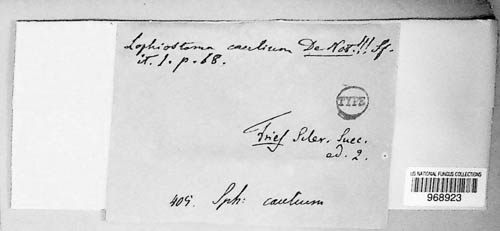 Lophiostoma caulium De Not.!!! Sf.
it. 1. p. 68.
TYPE
Fries Scler. Suec.
ed. 2.
US NATIONAL FUNGUS COLLECTIONS
968923
405. Sph: caulium